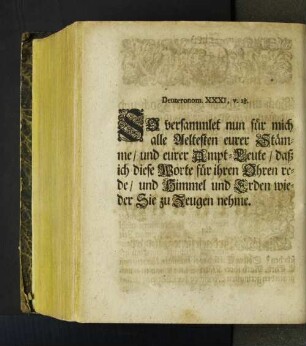 Deuteronom. XXXI, v. 28.
SO versammlet nun für mich
alle Aeltesten eurer Stäm-
me/ und eurer Ampt-Leute/ daß
ich diese Worte für ihren Ohren re-
de/ und Himmel und Erden wie-
der Sie zu Zeugen nehme.